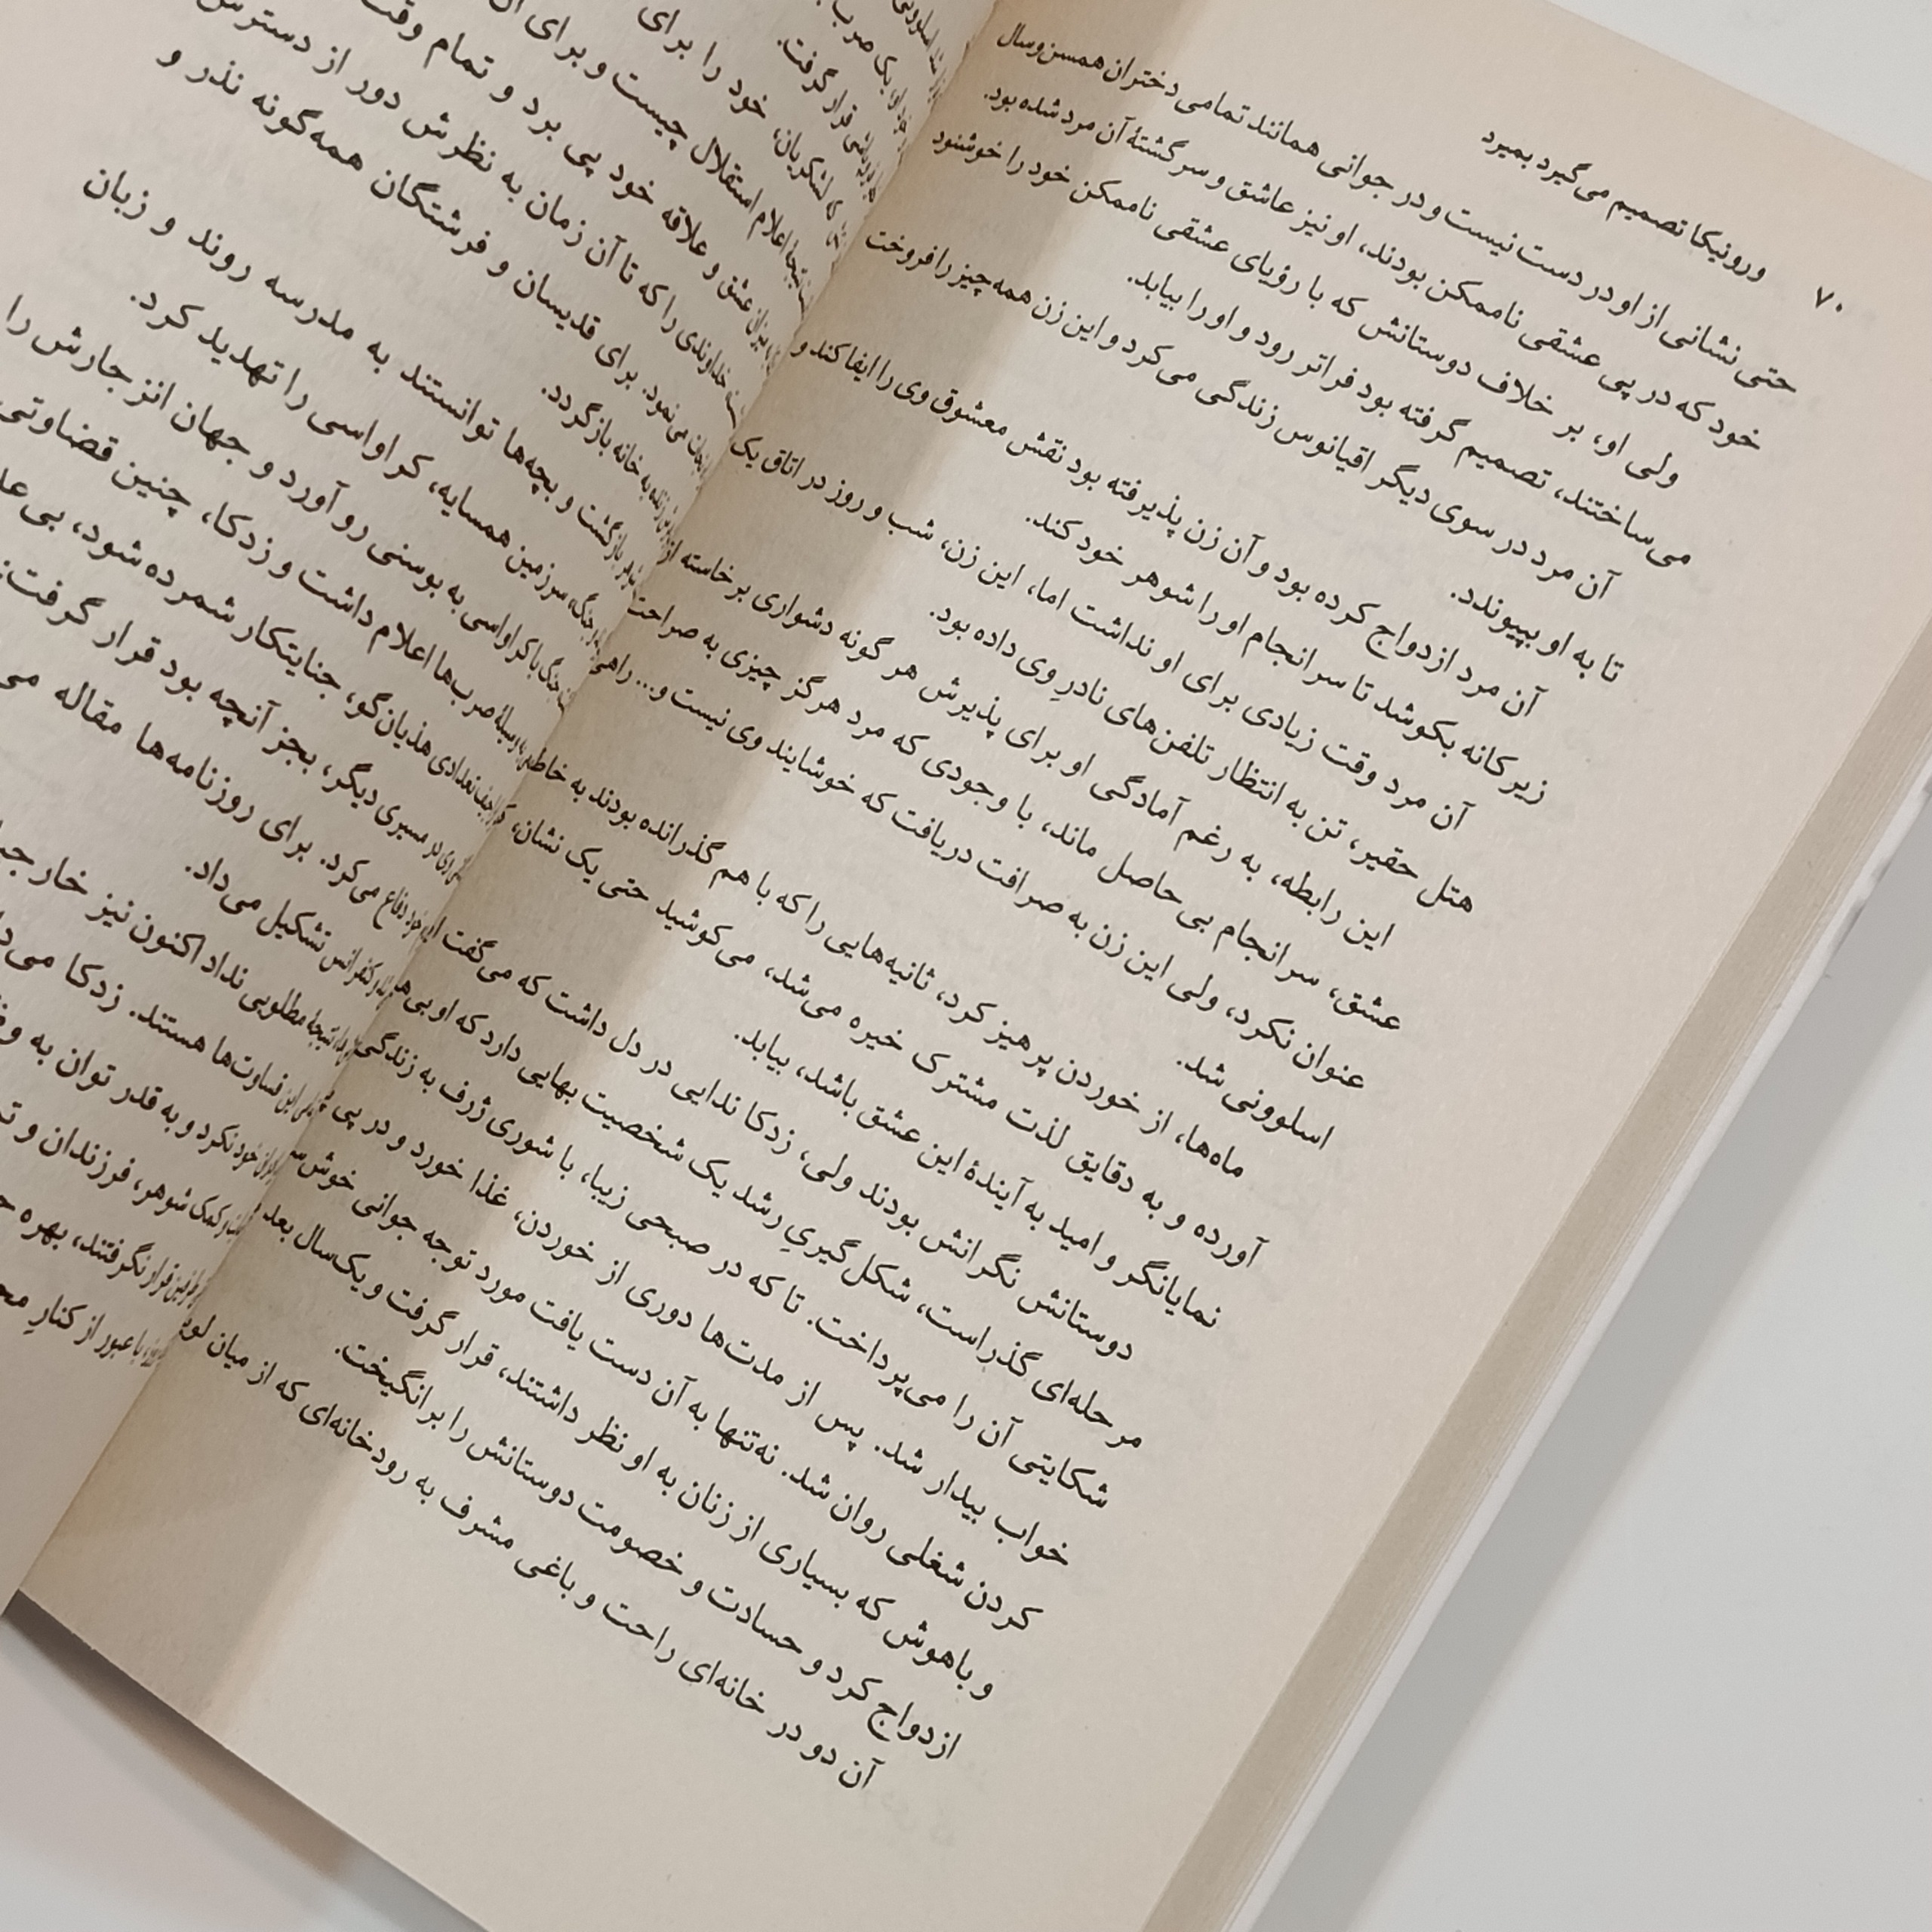 ۷۰
ورونیکا تصمیم می‌گیرد بمیرد
حتی نشانی از او در دست نیست و در جوانی همانند تمامی دختران همسن‌وسال
خود که در پی عشقی ناممکن بودند، او نیز عاشق و سرگشتهٔ آن مرد شده بود.
ولی او، بر خلاف دوستانش که با رؤیای عشقی ناممکن خود را خوشنود
می‌ساختند، تصمیم گرفته بود فراتر رود و او را بیابد.
آن مرد در سوی دیگر اقیانوس زندگی می‌کرد و این زن همه چیز را فروخت
تا به او بپیوندد.
آن مرد ازدواج کرده بود و آن زن پذیرفته بود نقش معشوق وی را ایفا کند و
زیرکانه بکوشد تا سرانجام او را شوهر خود کند.
آن مرد وقت زیادی برای او نداشت اما، این زن، شب و روز در اتاق یک
هتل حقیر، تن به انتظار تلفن‌های نادرِ وی داده بود.
این رابطه، به رغم آمادگی او برای پذیرش هر گونه دشواری برخاسته از
عشق، سرانجام بی‌حاصل ماند، با وجودی که مرد هرگز چیزی به صراحت
عنوان نکرد، ولی این زن به صرافت دریافت که خوشایند وی نیست و... راهی
اسلوونی شد.
ماه‌ها، از خوردن پرهیز کرد، ثانیه‌هایی را که با هم گذرانده بودند به خاطر
آورده و به دقایق لذت مشترک خیره می‌شد، می‌کوشید حتی یک نشان، که
نمایانگر و امید به آیندهٔ این عشق باشد، بیابد.
دوستانش نگرانش بودند ولی، زدکا ندایی در دل داشت که می‌گفت این
مرحله‌ای گذراست، شکل‌گیریِ رشد یک شخصیت بهایی دارد که او بی‌هیچ
شکایتی آن را می‌پرداخت. تا که در صبحی زیبا، با شوری ژرف به زندگی از
خواب بیدار شد. پس از مدت‌ها دوری از خوردن، غذا خورد و در پی پیدا
کردن شغلی روان شد. نه‌تنها به آن دست یافت مورد توجه جوانی خوش‌سیما
و باهوش که بسیاری از زنان به او نظر داشتند، قرار گرفت و یک‌سال بعد
ازدواج کرد و حسادت و خصومت دوستانش را برانگیخت.
آن دو در خانه‌ای راحت و باغی مشرف به رودخانه‌ای که از میان
قرار گرفت.
لشکریان، خود را برای
اعلام استقلال چیست و برای
عشق و علاقه خود پی برد و تمام
خداوندی را که تا آن زمان به نظرش دور از دسترس
می‌نمود. برای قدیسان و فرشتگان همه‌گونه نذر و
به خانه بازگردد.
بازگشت و بچه‌ها توانستند به مدرسه روند و زبان
سرزمین همسایه، کرواسی را تهدید کرد.
جنگ با کرواسی به بوسنی رو آورد و جهان انزجارش را
صرب‌ها اعلام داشت و زدکا، چنین قضاوتی
تعدادی هذیان‌گو، جنایتکار شمرده شود،
در مسیری دیگر، بجز آنچه بود قرار گرفت:
خود دفاع می‌کرد. برای روزنامه‌ها مقاله
کنفرانس تشکیل می‌داد.
نتیجهٔ مطلوبی نداد اکنون نیز
این قساوت‌ها هستند. زدکا
خود نکرد و به قدر توان به
کمک شوهر، فرزندان و
قرار نگرفتند، بهره
با عبور از کنارِ